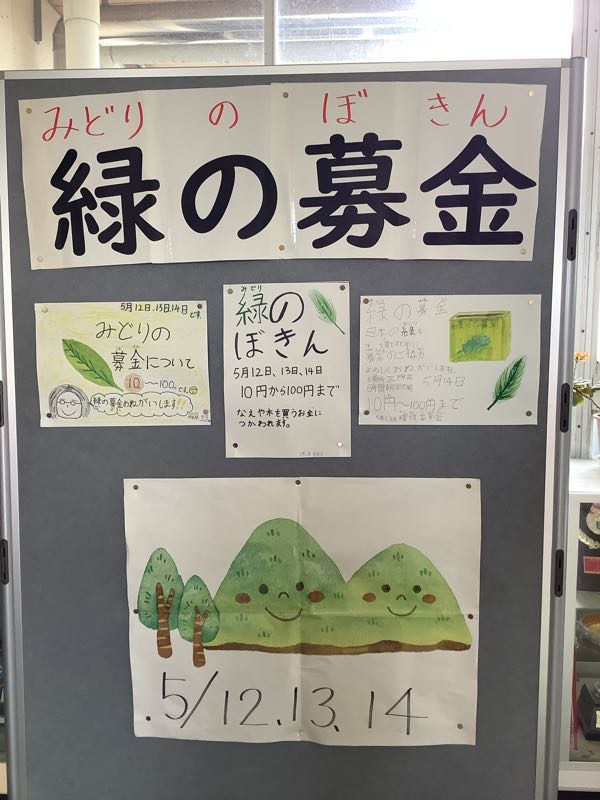 みどり の ぼ きん
緑の募金
5月12日、13日、14日です。
みどりの
募金について
10〜100
です。
緑の募金おねがいします!!
みどり
緑の
ぼきん
5月12日、13日、14日
10円から100円まで
なえや木を買うお金に
つかわれます。
緑の募金
日本の緑を
募金のご協力
よろしくおねがいします。
5月14日
10円〜100円まで
5/12、13、14